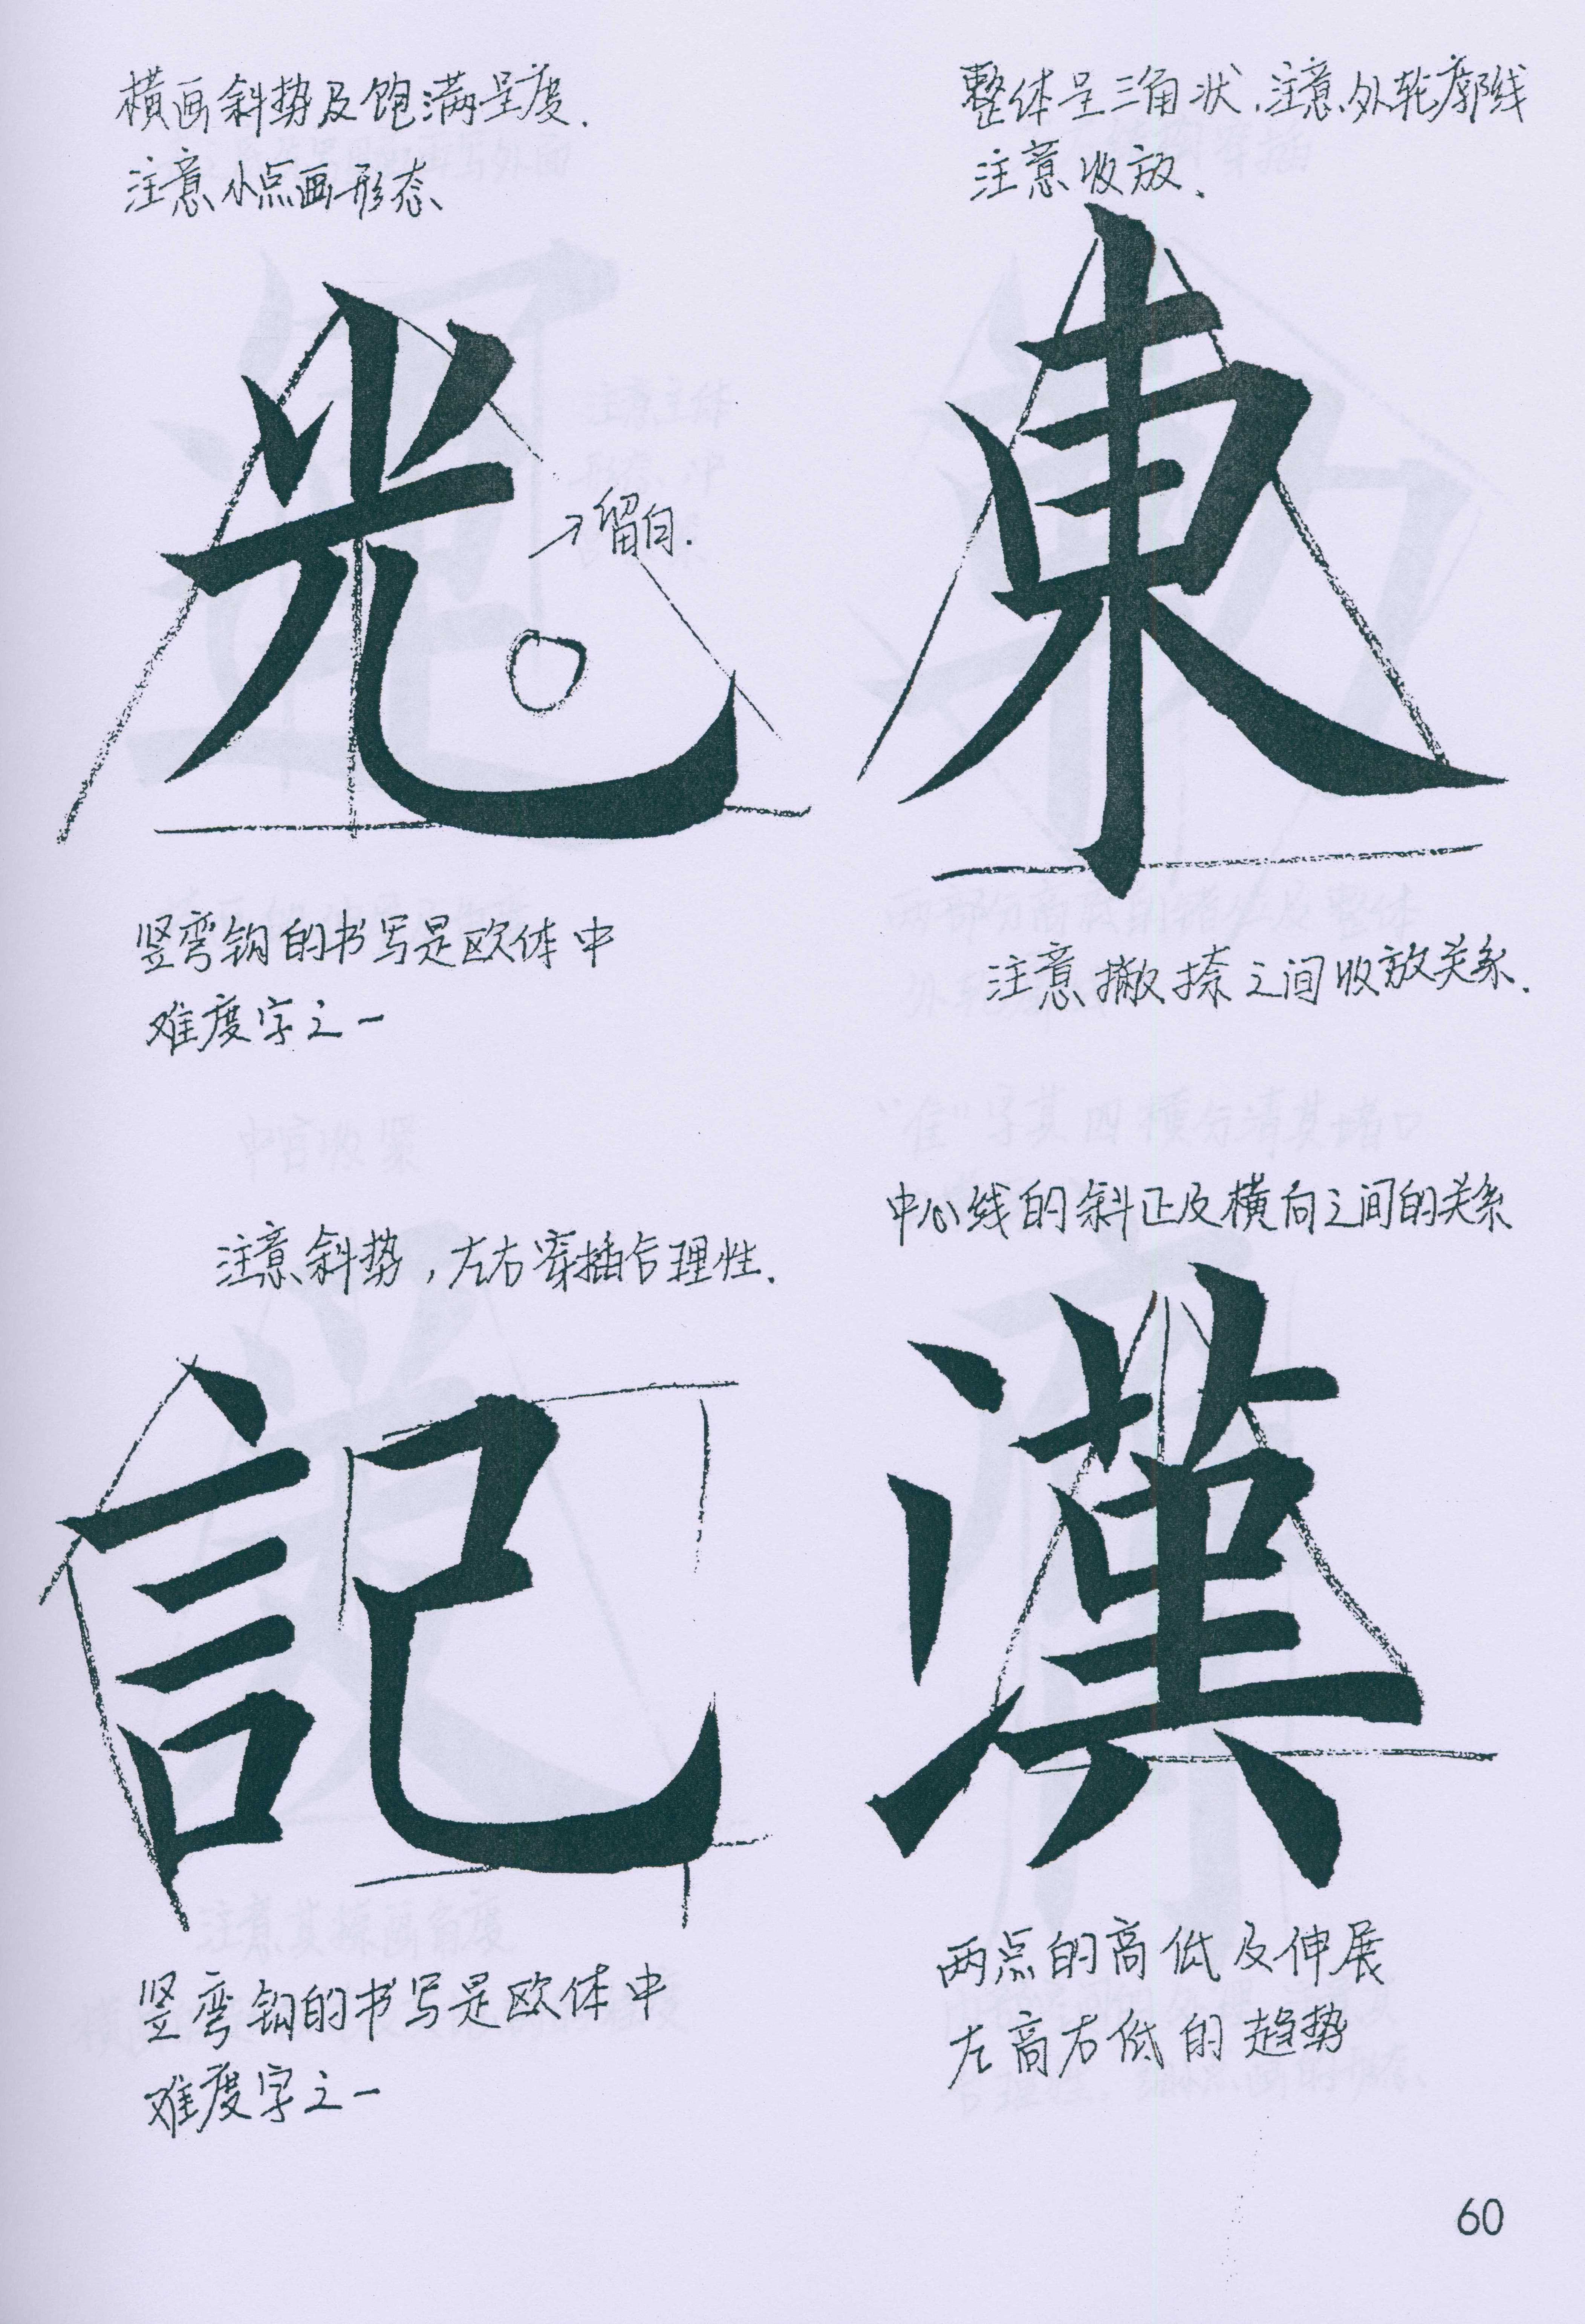 横画斜势及饱满呈度.
注意小点画形态
光
→留白.
竖弯钩的书写是欧体中
难度字之一
整体呈三角状.注意外轮廓线
注意收放.
東
注意撇捺之间收放关系.
注意斜势,左右穿插合理性.
記
竖弯钩的书写是欧体中
难度字之一
中心线的斜正及横向之间的关系
漢
两点的高低及伸展
左高右低的趋势
60